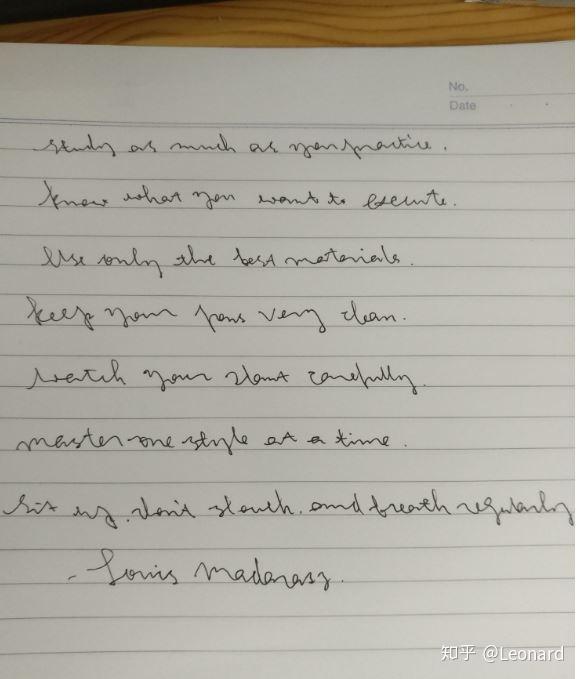 No.
Date
study as much as you practice.
know what you want to execute.
Use only the best materials.
keep your pens very clean.
watch your slant carefully.
master one style at a time.
Sit up, don't slouch, and breath regularly
- Louis Madarasz.
知乎 @Leonard